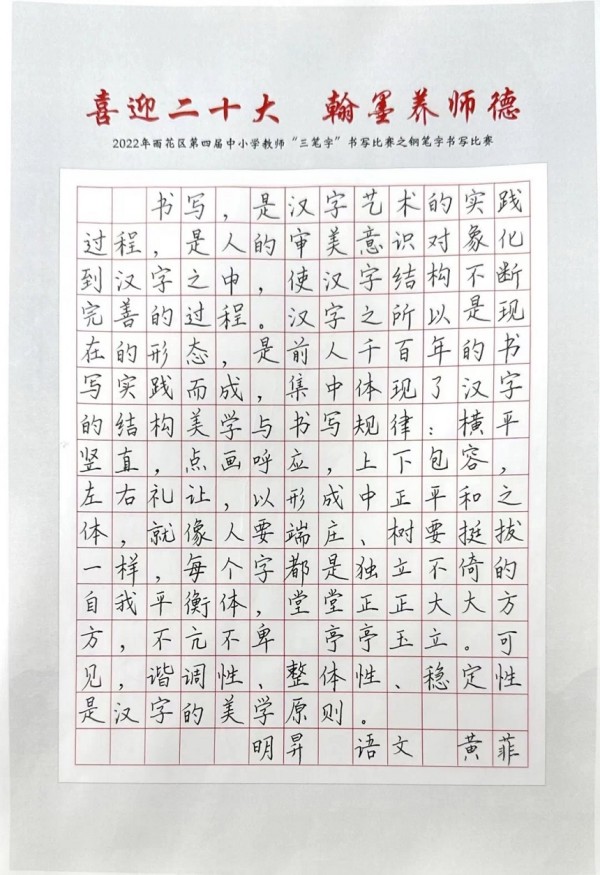 喜迎二十大 翰墨养师德
2022年雨花区第四届中小学教师“三笔字”书写比赛之钢笔字书写比赛
书写，是汉字艺术的实践
过程，是人的审美意识对象化
到汉字之中，使汉字结构不断
完善的过程。汉字之所以是现
在的形态，是前人千百年的书
写实践而成，集中体现了汉字
的结构美学与书写规律：横平
竖直，点画呼应，上下包容，
左右礼让，以形成中正平和之
体，就像人要端庄、树要挺拔
一样，每个字都是独立不倚的
自我平衡体，堂堂正正大大方
方，不亢不卑 亭亭玉立。可
见，谐调性、整体性、稳定性
是汉字的美学原则。
明昇 语文 黄菲